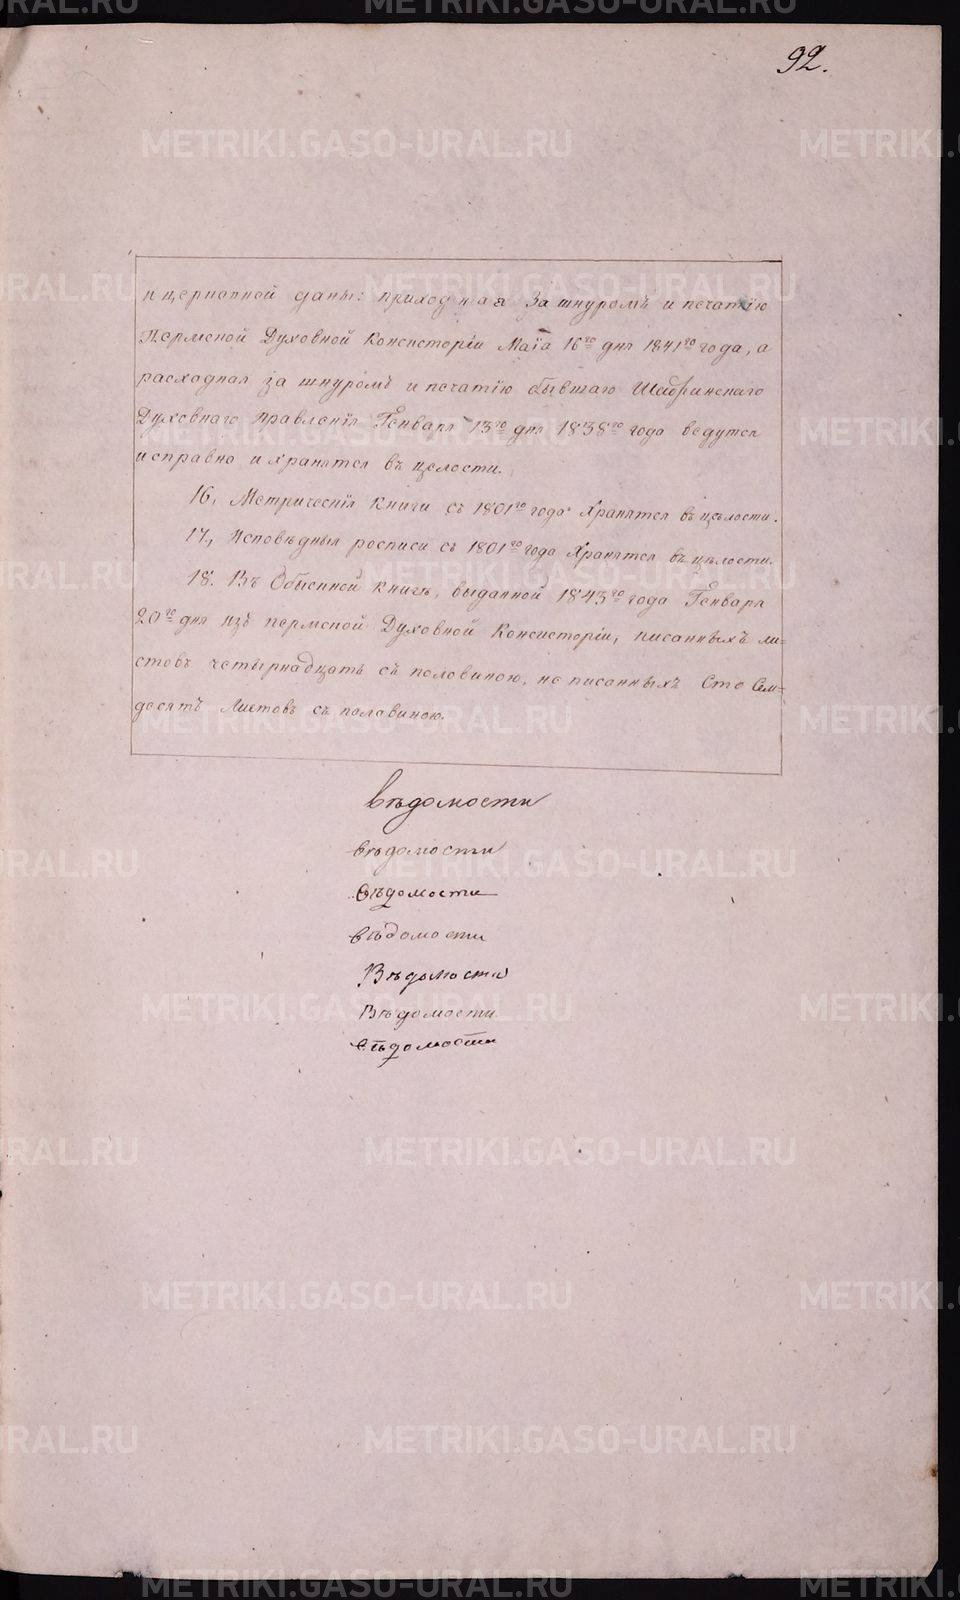 92.
и церковной даны: приходная за шнуромъ и печатію
Пермской Духовной Консисторіи Маіа 16го дня 1841го года, а
расходная за шнуромъ и печатію бывшаго Шадринскаго
Духовнаго Правленія Генваря 13го дня 1838го года ведутся
исправно и хранятся въ целости.
16, Метрическія книги съ 1801го года хранятся въ цѣлости.
17, Исповѣдныя росписи съ 1801го года хранятся въ цѣлости.
18. Въ Обыскной книгѣ, выданной 1843го года Генваря
20го дня изъ пермской Духовной Консисторіи, писанныхъ ли=
стовъ четырнадцать съ половиною, не писанныхъ Сто Сем=
десятъ Листовъ съ половиною.
вѣдомости
вѣдомости
вѣдомости
вѣдомости
Вѣдомости
Вѣдомости
вѣдомости
METRIKI.GASO-URAL.RU